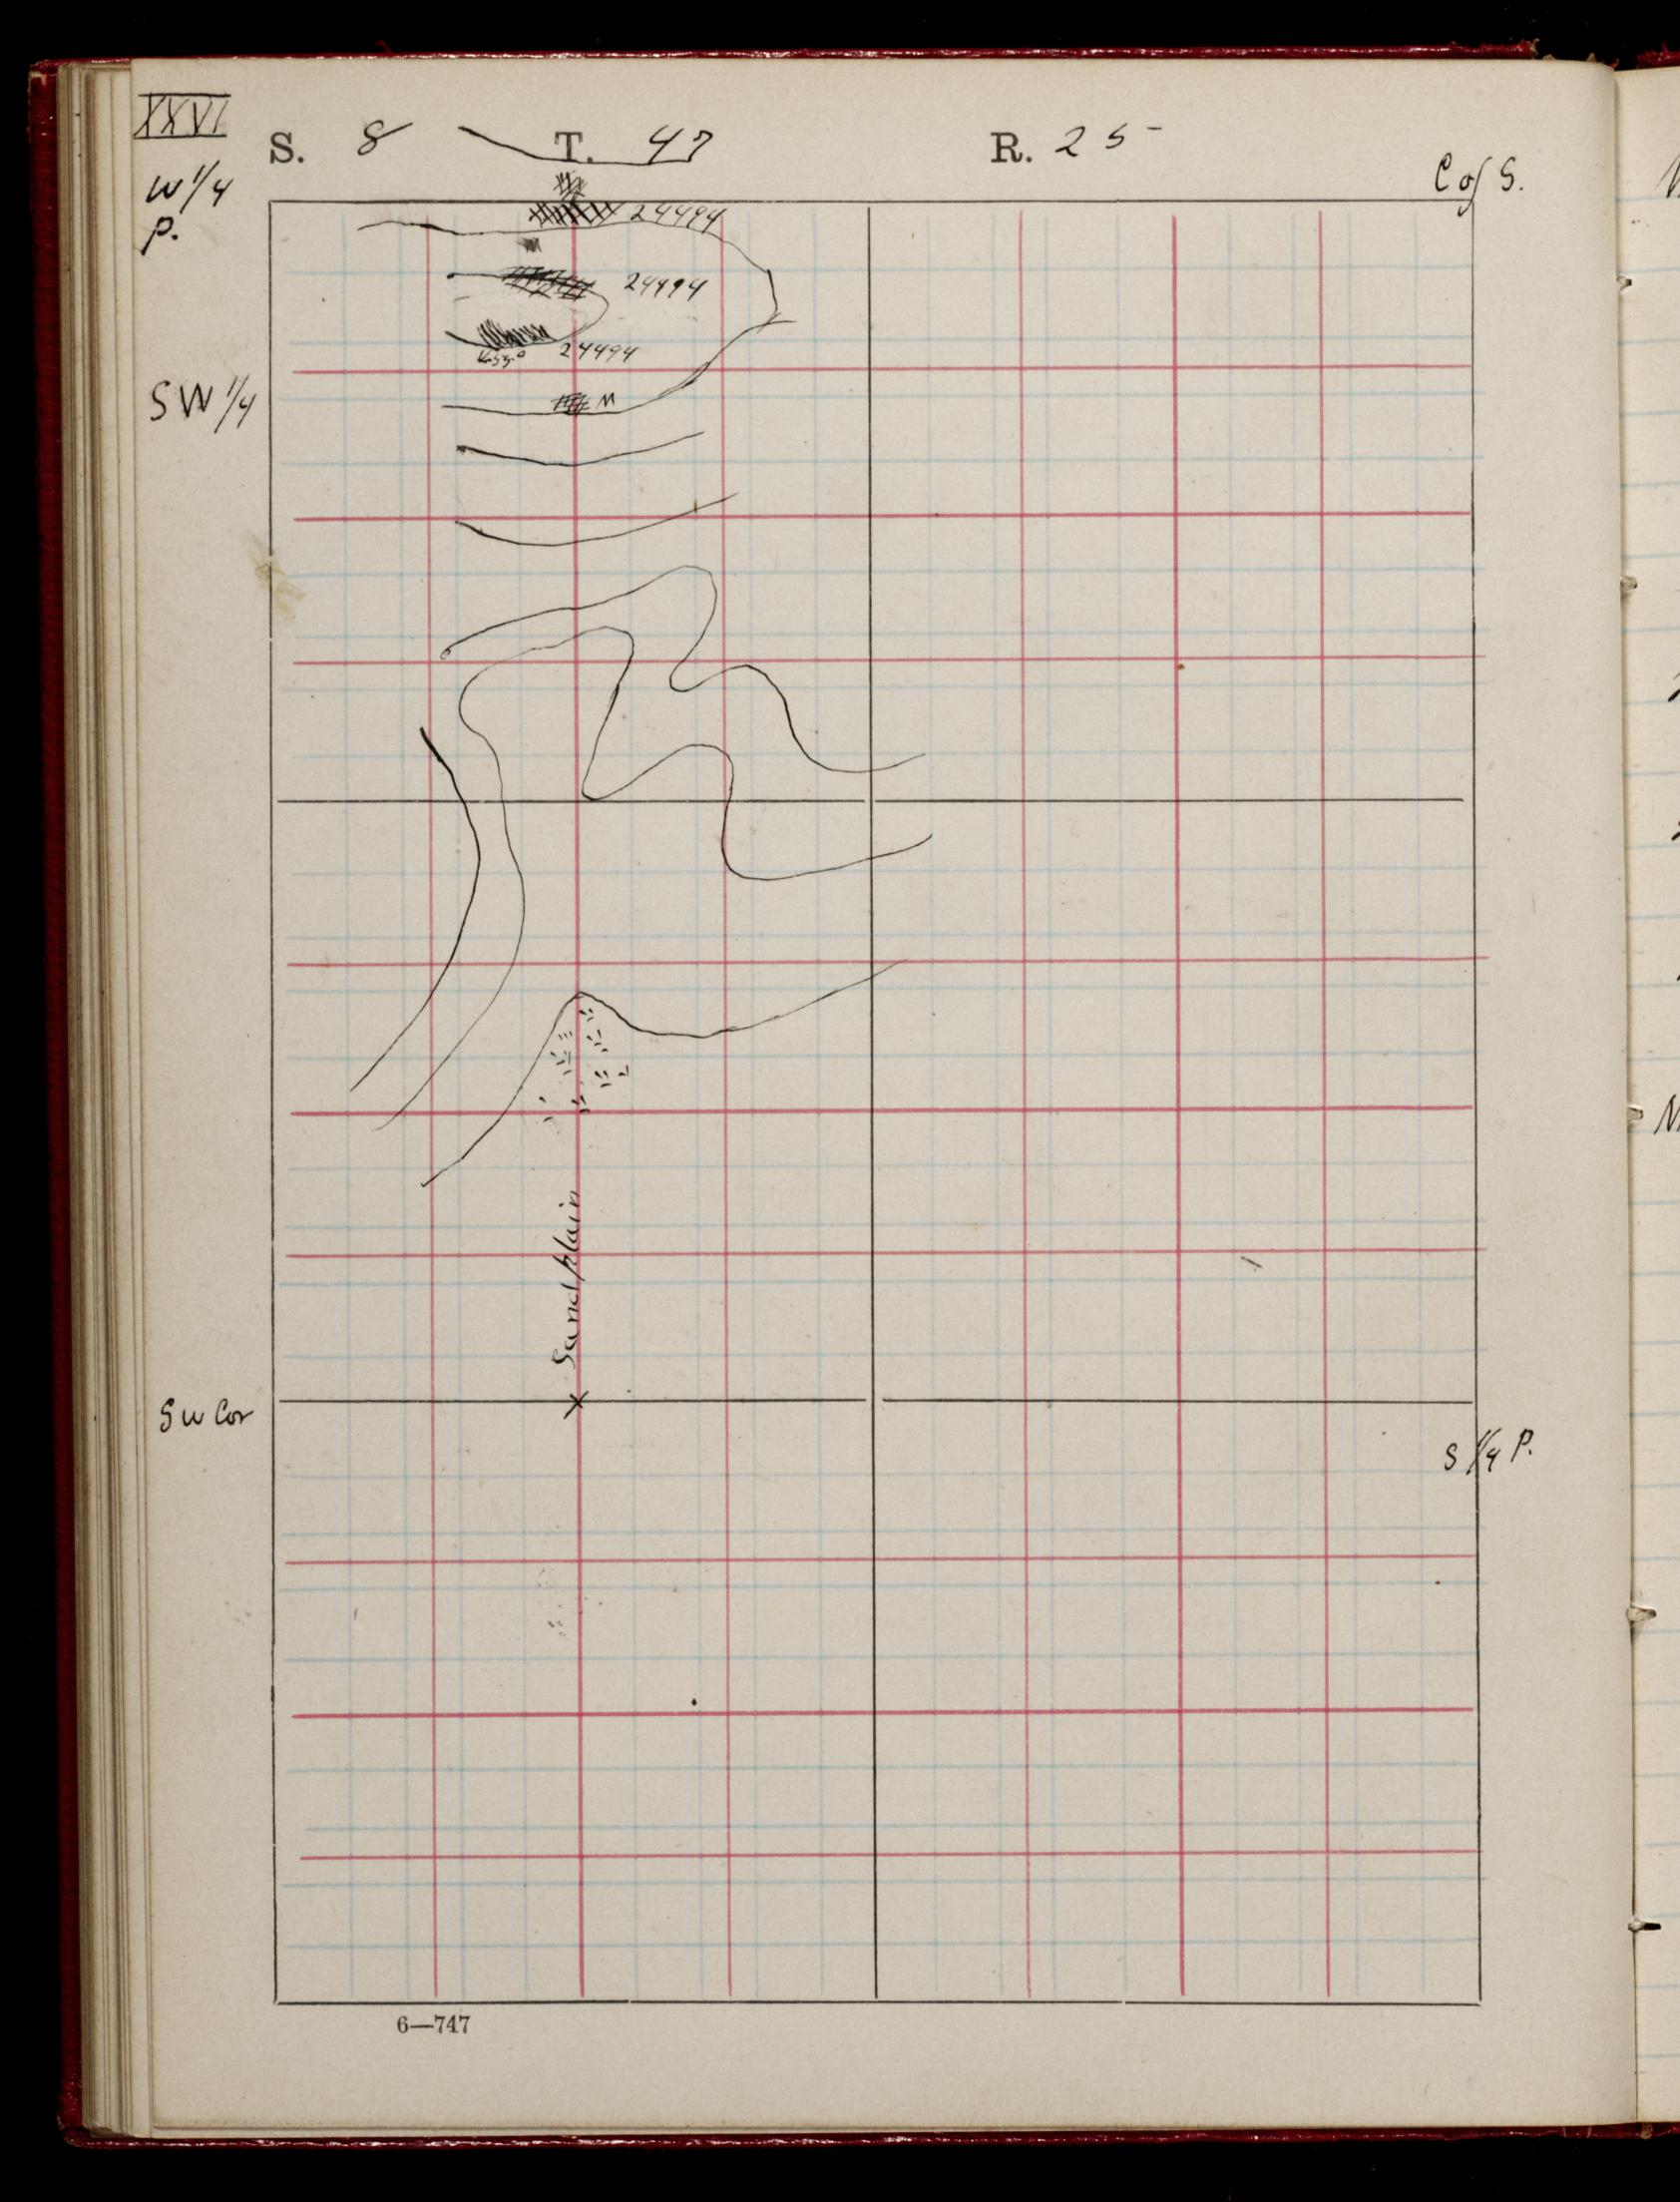 XXVI
S. 8 T. 47 R. 25
W 1/4 C of S.
P.
24494
24494
24494
M
SW 1/4
Sand plain
SW Cor
S 1/4 P.
6—747